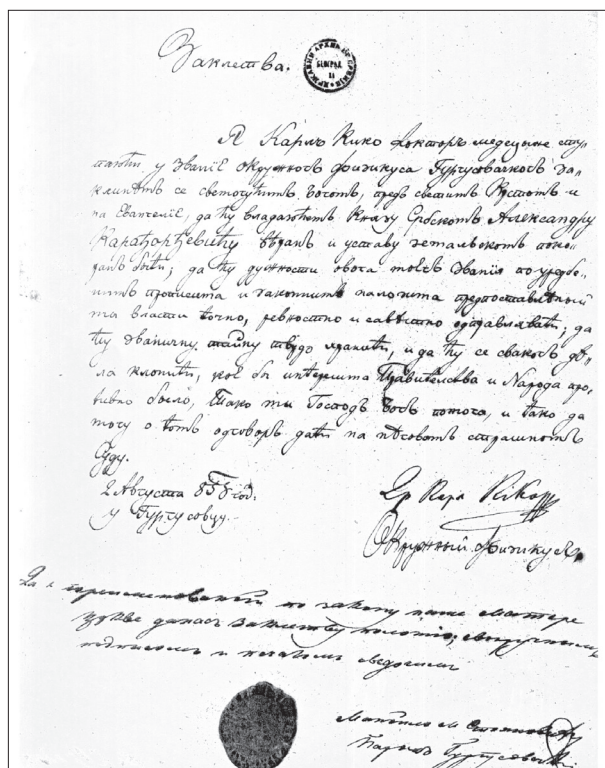 Заклетва.
ДРЖАВНА АРХИВА НР СРБИЈЕ БЕОГРАД
Я Карлъ Кико докторъ медецыне сту„
паюћи у Званіє окружногъ физикуса Гургусовачкогъ За„
клинѣмъ се свемогућимъ Богомъ, предъ светимъ и
на Евангеліє, да ћу владајућемъ Князу Србскомъ Александру
Карађорђевићу вѣранъ и уставу земальскомъ поко„
ранъ быти; да ћу дужности овога могъ Званія по
и законима предпоставлѣный
ми власти точно, ревностно и савѣстно одправляти; да
ћу званичну тайну тврдо хранити, и да ћу се свакогъ дѣ„
ла клонити, коє бы интересима Правителства и Народа про„
тивно было, Тако ми Господъ Богъ помогао, и тако да
могу о томъ одговоръ дати на нѣговомъ страшномъ
Суду.
2 Августа 858 год.
у Гургусовцу.
Др Карл Кико
Окружный Физикусъ
Да є по закону наше Матере
цркве данасъ заклетву положіо,
подписомъ и печатомъ